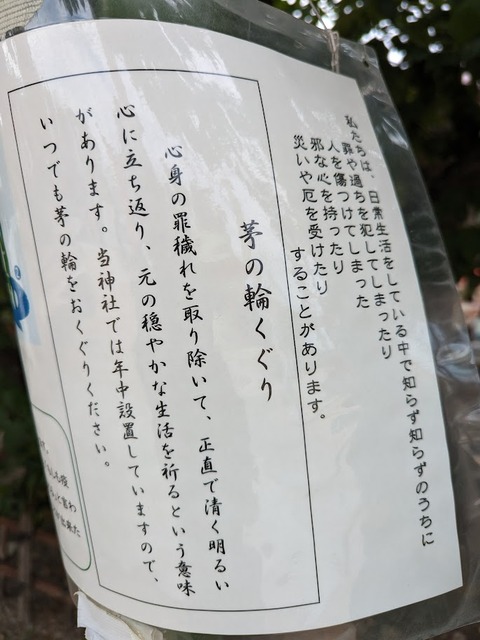 私たちは、日常生活をしている中で知らず知らずのうちに
罪や過ちを犯してしまったり
人を傷つけてしまった
邪な心を持ったり
災いや厄を受けたり
することがあります。
茅の輪くぐり
心身の罪穢れを取り除いて、正直で清く明るい
心に立ち返り、元の穏やかな生活を祈るという意味
があります。当神社では年中設置していますので、
いつでも茅の輪をおくぐりください。